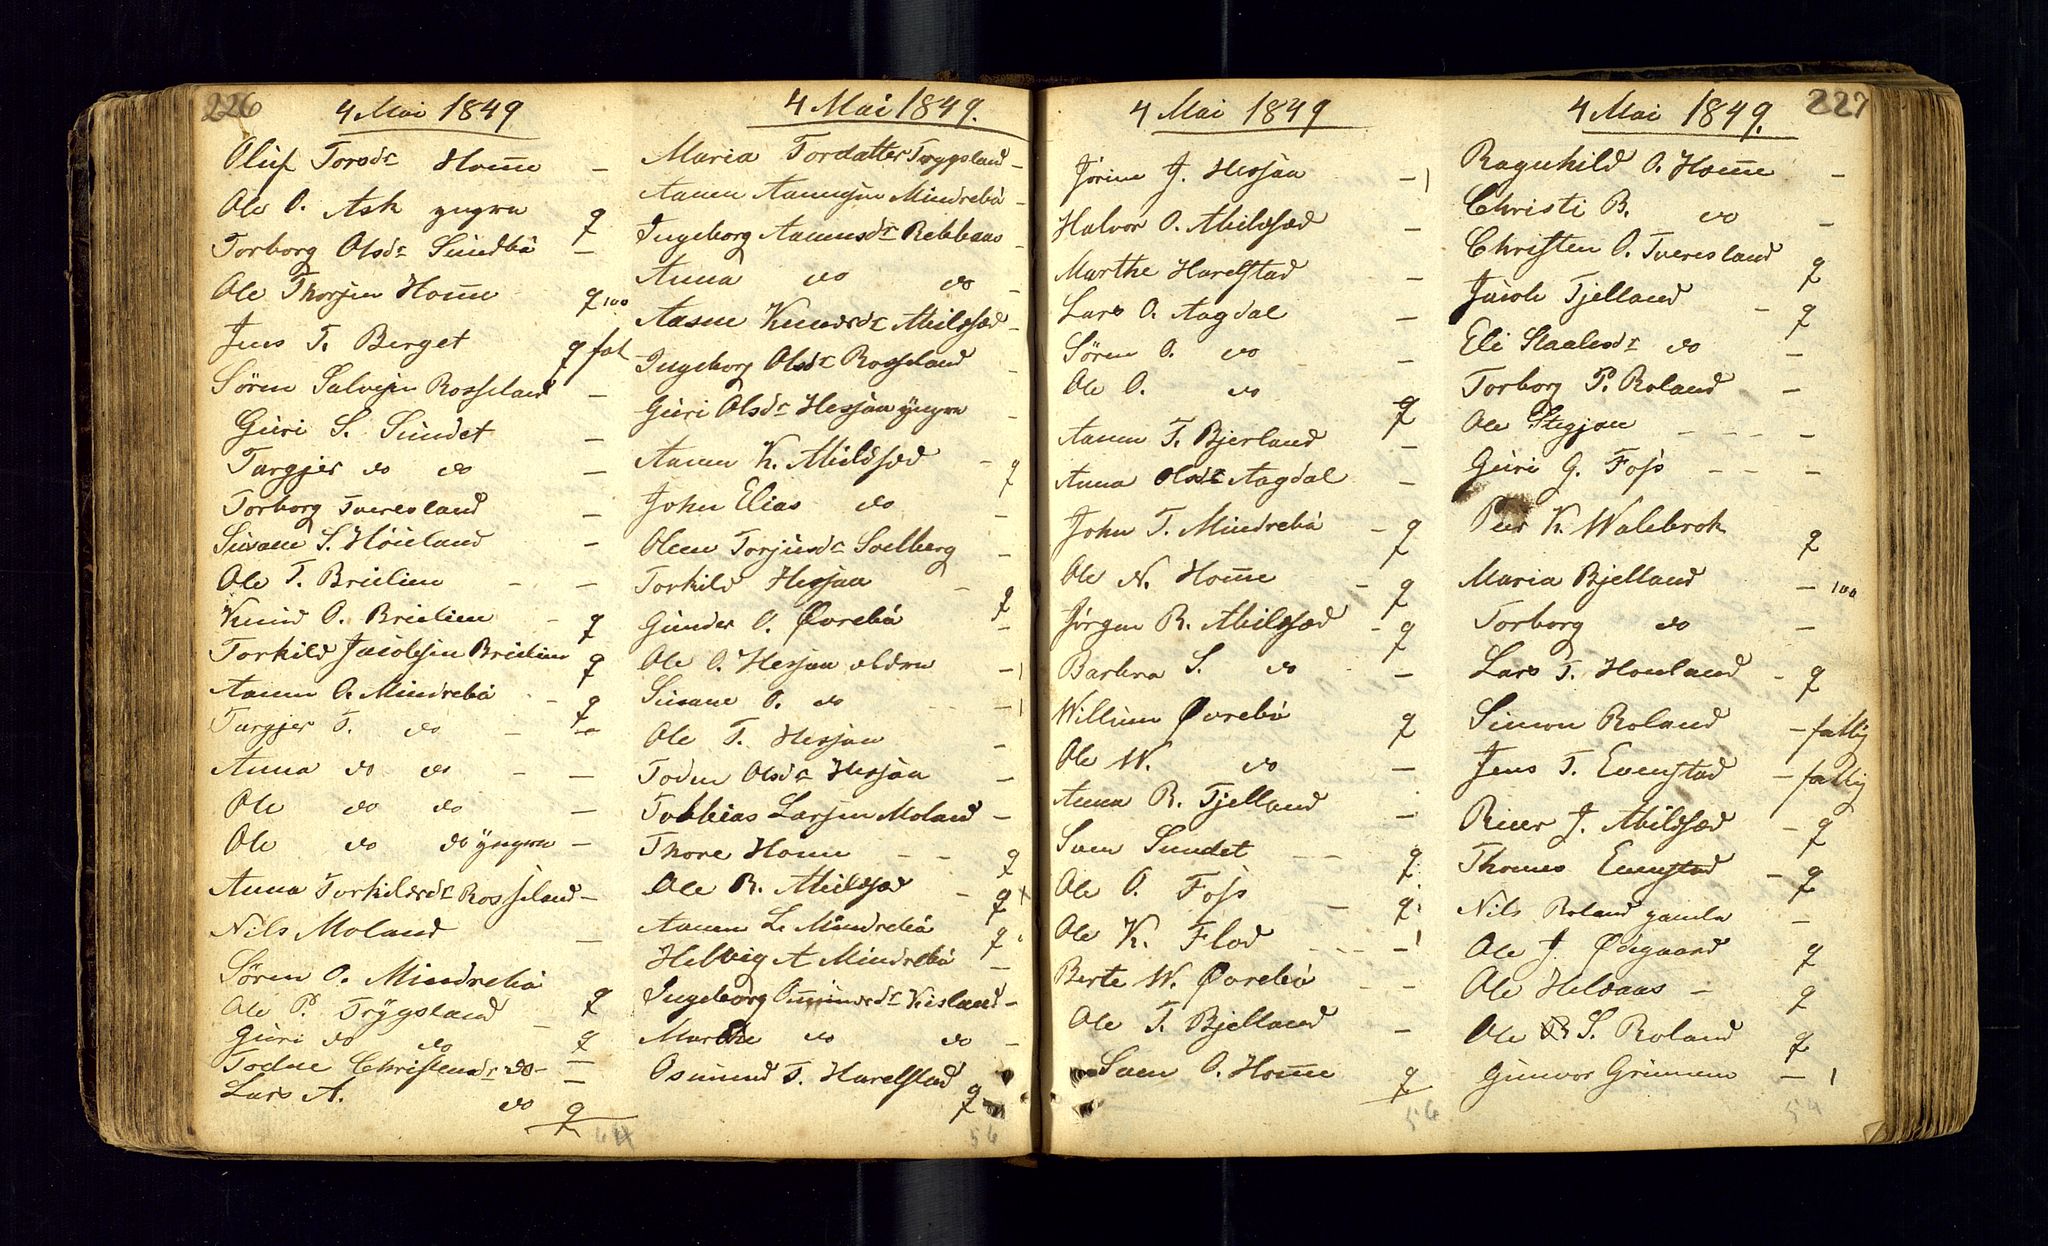 226
4 Mai 1849
Oluf Torsdr Homme –
Ole O. Ask yngre q
Torborg Olsdr Sundbö –
Ole Thorsen Homme q 100
Jens T. Berget q fat
Sören Salvesen Rosseland –
Guri S. Sundet –
Targjer do do –
Torborg Tveresland –
Susane S. Höieland –
Ole T. Breilien – –
Knud O. Breilien – q
Torkild Jacobsen Breilien q
Aanen O. Mindrebö – q
Targjer T. do – –
Anna do do – –
Ole do do –
Ole do do yngre –
Anna Torkildsdr Rosseland –
Nils Moland –
Sören O. Mindrebö q
Ole P. Trygsland – q
Guri do do –
Todne Christensdr do – –
Lars A. do q
64
4 Mai 1849.
Maria Tordatter Trygsland –
Aanen Aanensen Mindrebö –
Ingeborg Aanensdr Rebbaas –
Anna do do –
Aasne Knudsdr Abildsæd –
Ingeborg Olsdr Rosseland –
Guri Olsdr Hesjaa yngre –
Aanen K. Abildsæd – q
John Elias do –
Olene Torjusdr Soelberg –
Torkild Hesjaa – q
Gunder O. Øvrebö –
Ole O. Hesjaa eldre – 1
Susane O. do – 1
Ole T. Hesjaa –
Todne Olsdr Hesjaa –
Tobbias Larsen Moland –
Thore Homme – – q
Ole R. Abildsæd – q
Aanen L. Mindrebö q
Helvig A Mindrebö –
Ingeborg Omundsdr Kisland –
Marthe do do –
Osmund T. Harelstad q
56
4 Mai 1849
Jörine J. Hesjaa – 1
Halvor O. Abildsæd –
Marthe Harelstad –
Lars O. Aagdal –
Sören O. do –
Ole O. do q
Aanen T. Bjerland –
Anna Olsdr Aagdal –
John T. Mindrebö – q
Ole N. Homme – q
Jörgen R. Abildsæd – q
Barbra S. do –
Willum Øvrebö q
Ole W. do –
Anna R. Tjelland –
Sven Sundet – – q
Ole O. Foss – q
Ole K. Flod – 1
Berte W. Øvrebö – –
Ole T. Bjelland –
Sven O. Homme q
56
227
4 Mai 1849.
Ragnhild O. Homme –
Christi B. do –
Christen O. Tveresland q
Jacob Tjelland – q
Eli Staalesdr do –
Torborg P. Roland –
Ole Stegjan – – – –
Guri G. Foss – – –
Peer K. Walebrok q
Maria Bjelland – 100
Torborg do –
Lars T. Houland – q
Simon Roland – fattig
Jens T. Evenstad – fattig
Reier J. Abildsæd – q
Thomes Evenstad – q
Nils Roland gamle –
Ole J. Ødegaard q
Ole Heldaas – q
Ole S. Roland q
Gunvor Grimem – 1
54